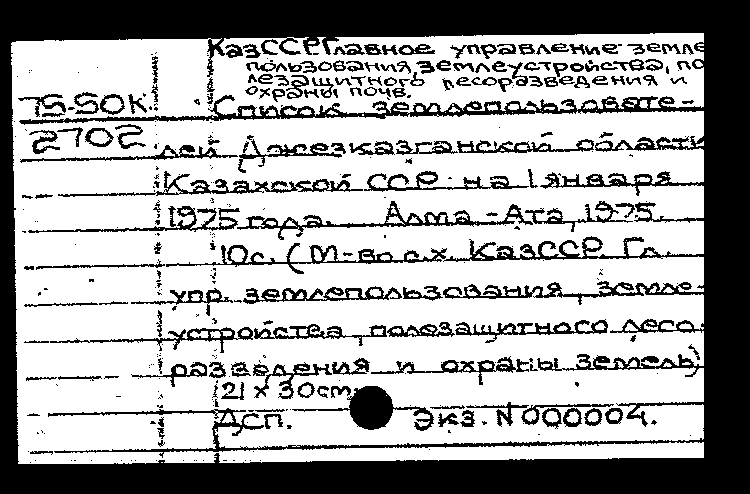 КазССР. Главное управление земле
пользования, землеустройства, по
лезащитного лесоразведения и
охраны почв.
75-50К. Список землепользовате-
2702 лей Джезказганской области
Казахской ССР на 1 января
1975 года. Алма-Ата, 1975.
10с. (М-во с.х. КазССР. Гл.
упр. землепользования, земле-
устройства, полезащитного лесо-
разведения и охраны земель)
21 x 30cm.
ДСП. Экз. N 000004.